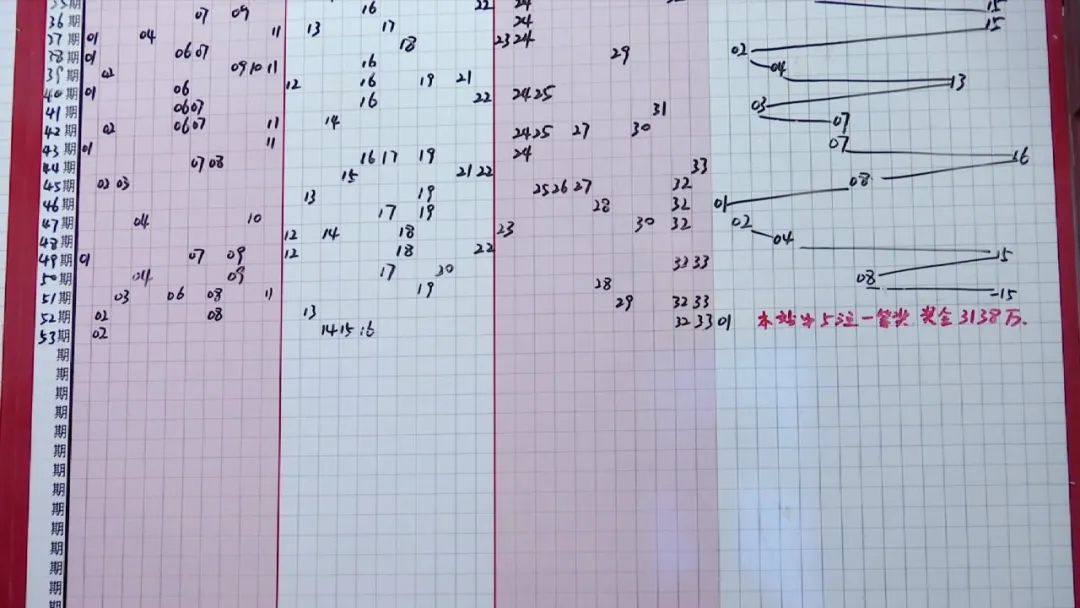 35期
36期 07 09 16 22 24 15
37期 01 04 11 13 17 24 15
38期 01 06 07 18 23 24 02
39期 02 09 10 11 16 29 04
40期 01 06 12 16 19 21 13
41期 06 07 16 22 24 25 03
42期 02 06 07 11 14 31 07
43期 01 11 24 25 27 30 07
44期 07 08 16 17 19 24 16
45期 02 03 15 21 22 33 08
46期 13 19 25 26 27 32 01
47期 04 10 17 19 28 32 02
48期 12 14 18 23 30 32 04
49期 01 07 09 12 18 22 15
50期 04 09 17 20 33 33 08
51期 03 06 08 11 19 28 15
52期 02 08 13 29 32 33
53期 02 14 15 16 32 33 01 本站中5注一等奖 奖金3138万.
期
期
期
期
期
期
期
期
期
期
期
期
期
期